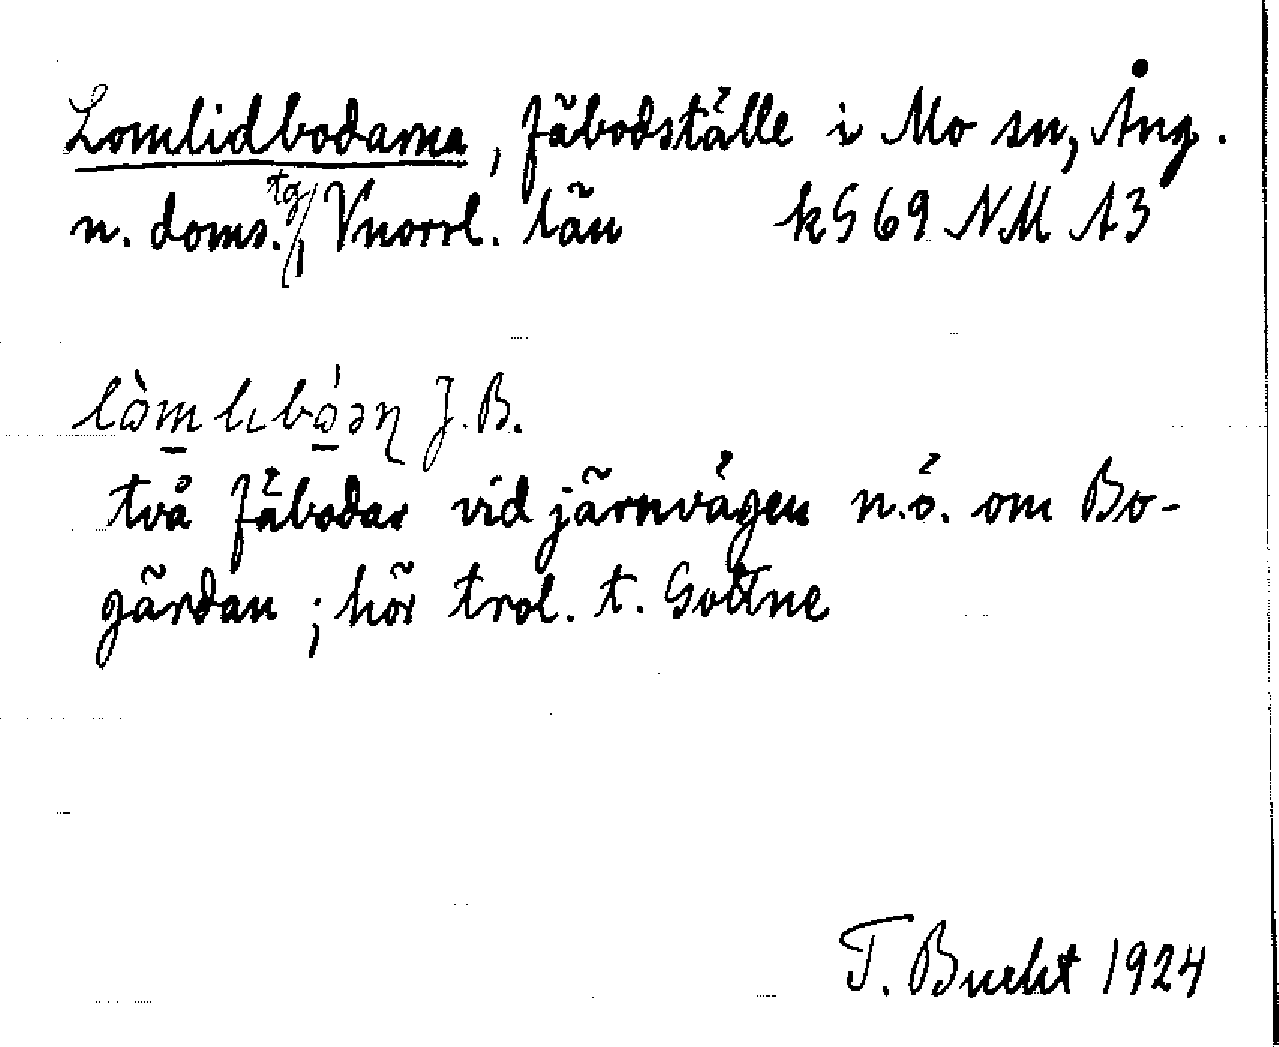 Lomlidbodarna, fäbodställe i Mo sn, Ång.
n. doms.tg, Vnorrl. län kS 69 NM A3
J.B.
två fäbodar vid järnvägen n.ö. om Bo-
gärdan; hör trol. t. Gottne
T. Bucht 1924